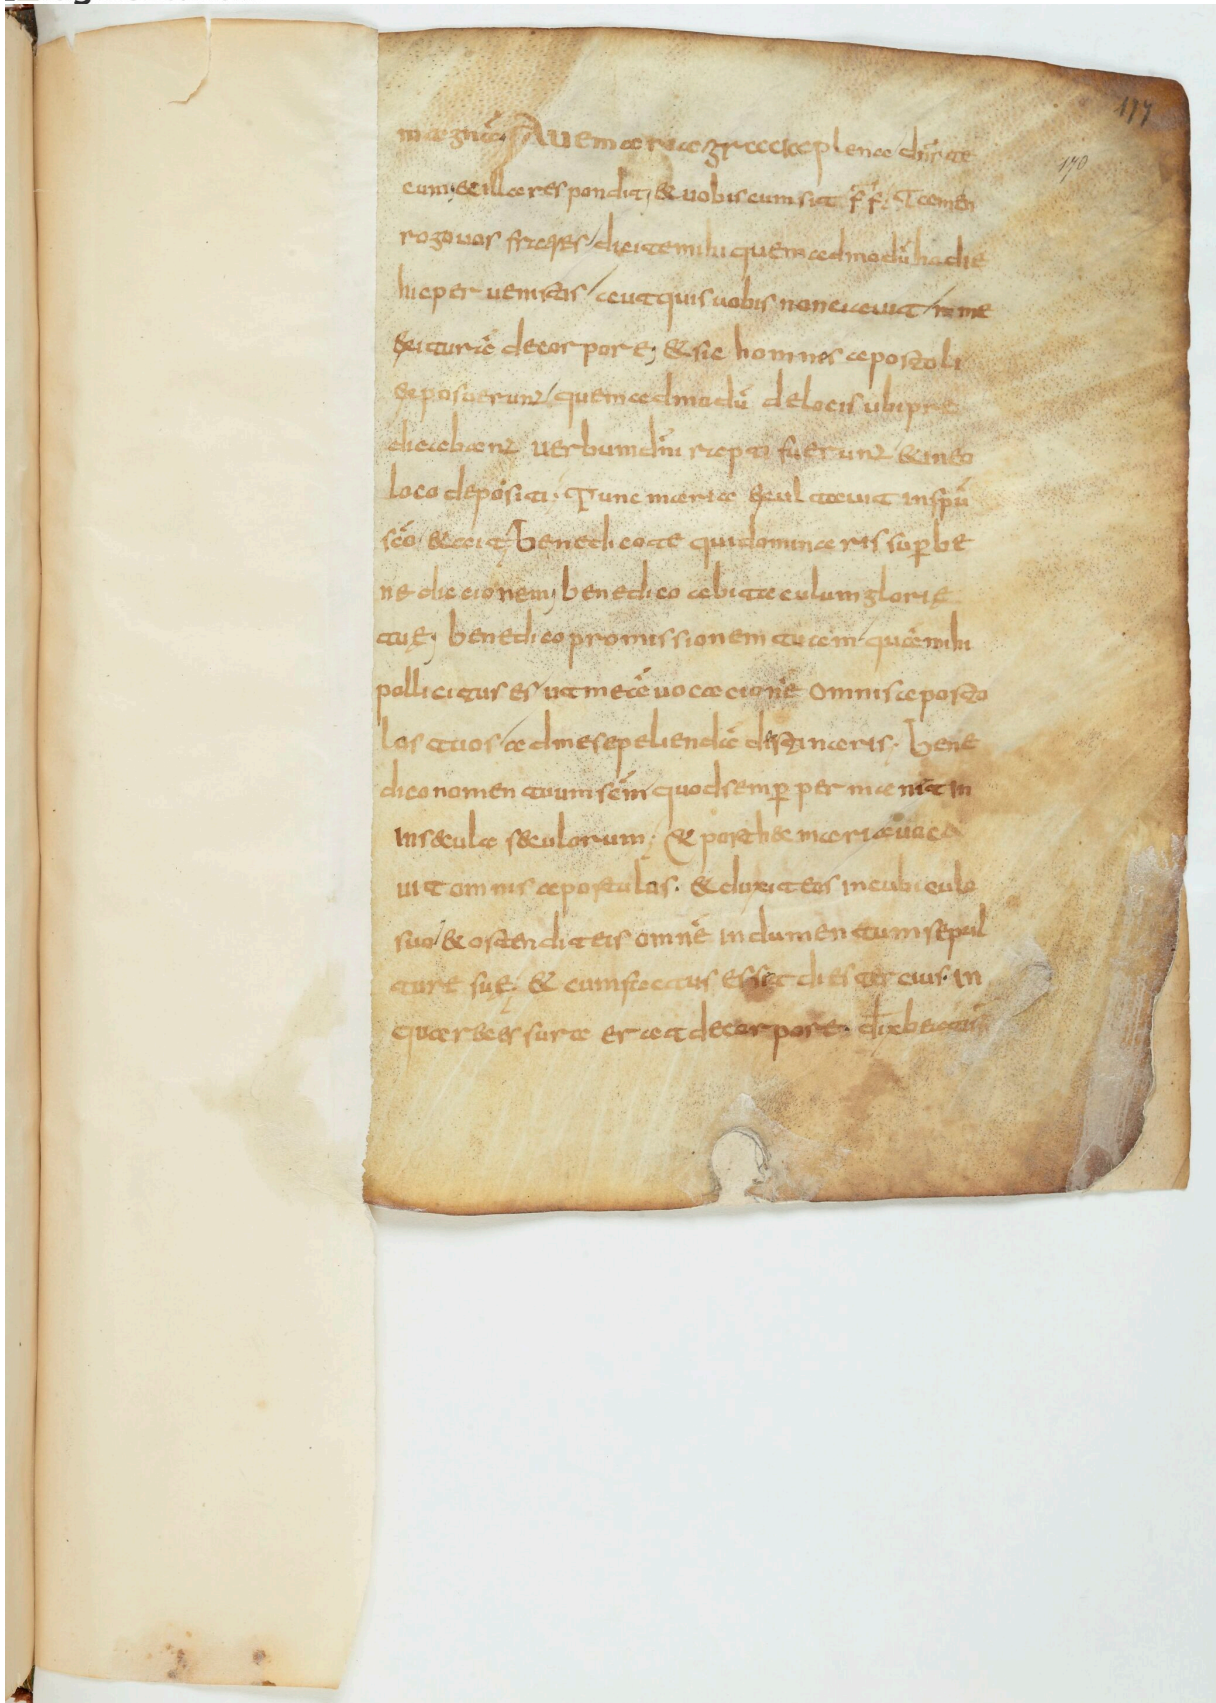 117
170
magna. Aue maria gracia plena dn̄s te
cum; & illa respondit, & uobiscum sit f̄f̄. Tamen
rogo uos fratres dicite mihi quem admodū hodie
huc per uenistis aut quis uobis nonciauit me
exiturā de corpore; & sic homnes apostoli
exposuerunt quem admodū de locis ubi pre
dicabant uerbum dn̄i rapti fuerunt & in eo
loco depositi. Tunc maria exultauit in spū
sc̄o & ait, benedico te qui dominaris sup̄ be
nediccionem, benedico abitaculum glorie
tuę, benedico promissionem tuam quā mihi
pollicitus es ut meā uocacionē omnis aposto
los tuos ad me sepeliendā distinaris. Bene
dico nomen tuum sc̄m quod semp̄ per manit in
in sæcula sæculorum. & post hæc maria uoca
uit omnis apostulos. & duxit eis in cubiculo
suo & ostendit eis omnē indumentum sepul
ture suę, & cum factus essit dies tercius in
qua recessura erat de corpore.